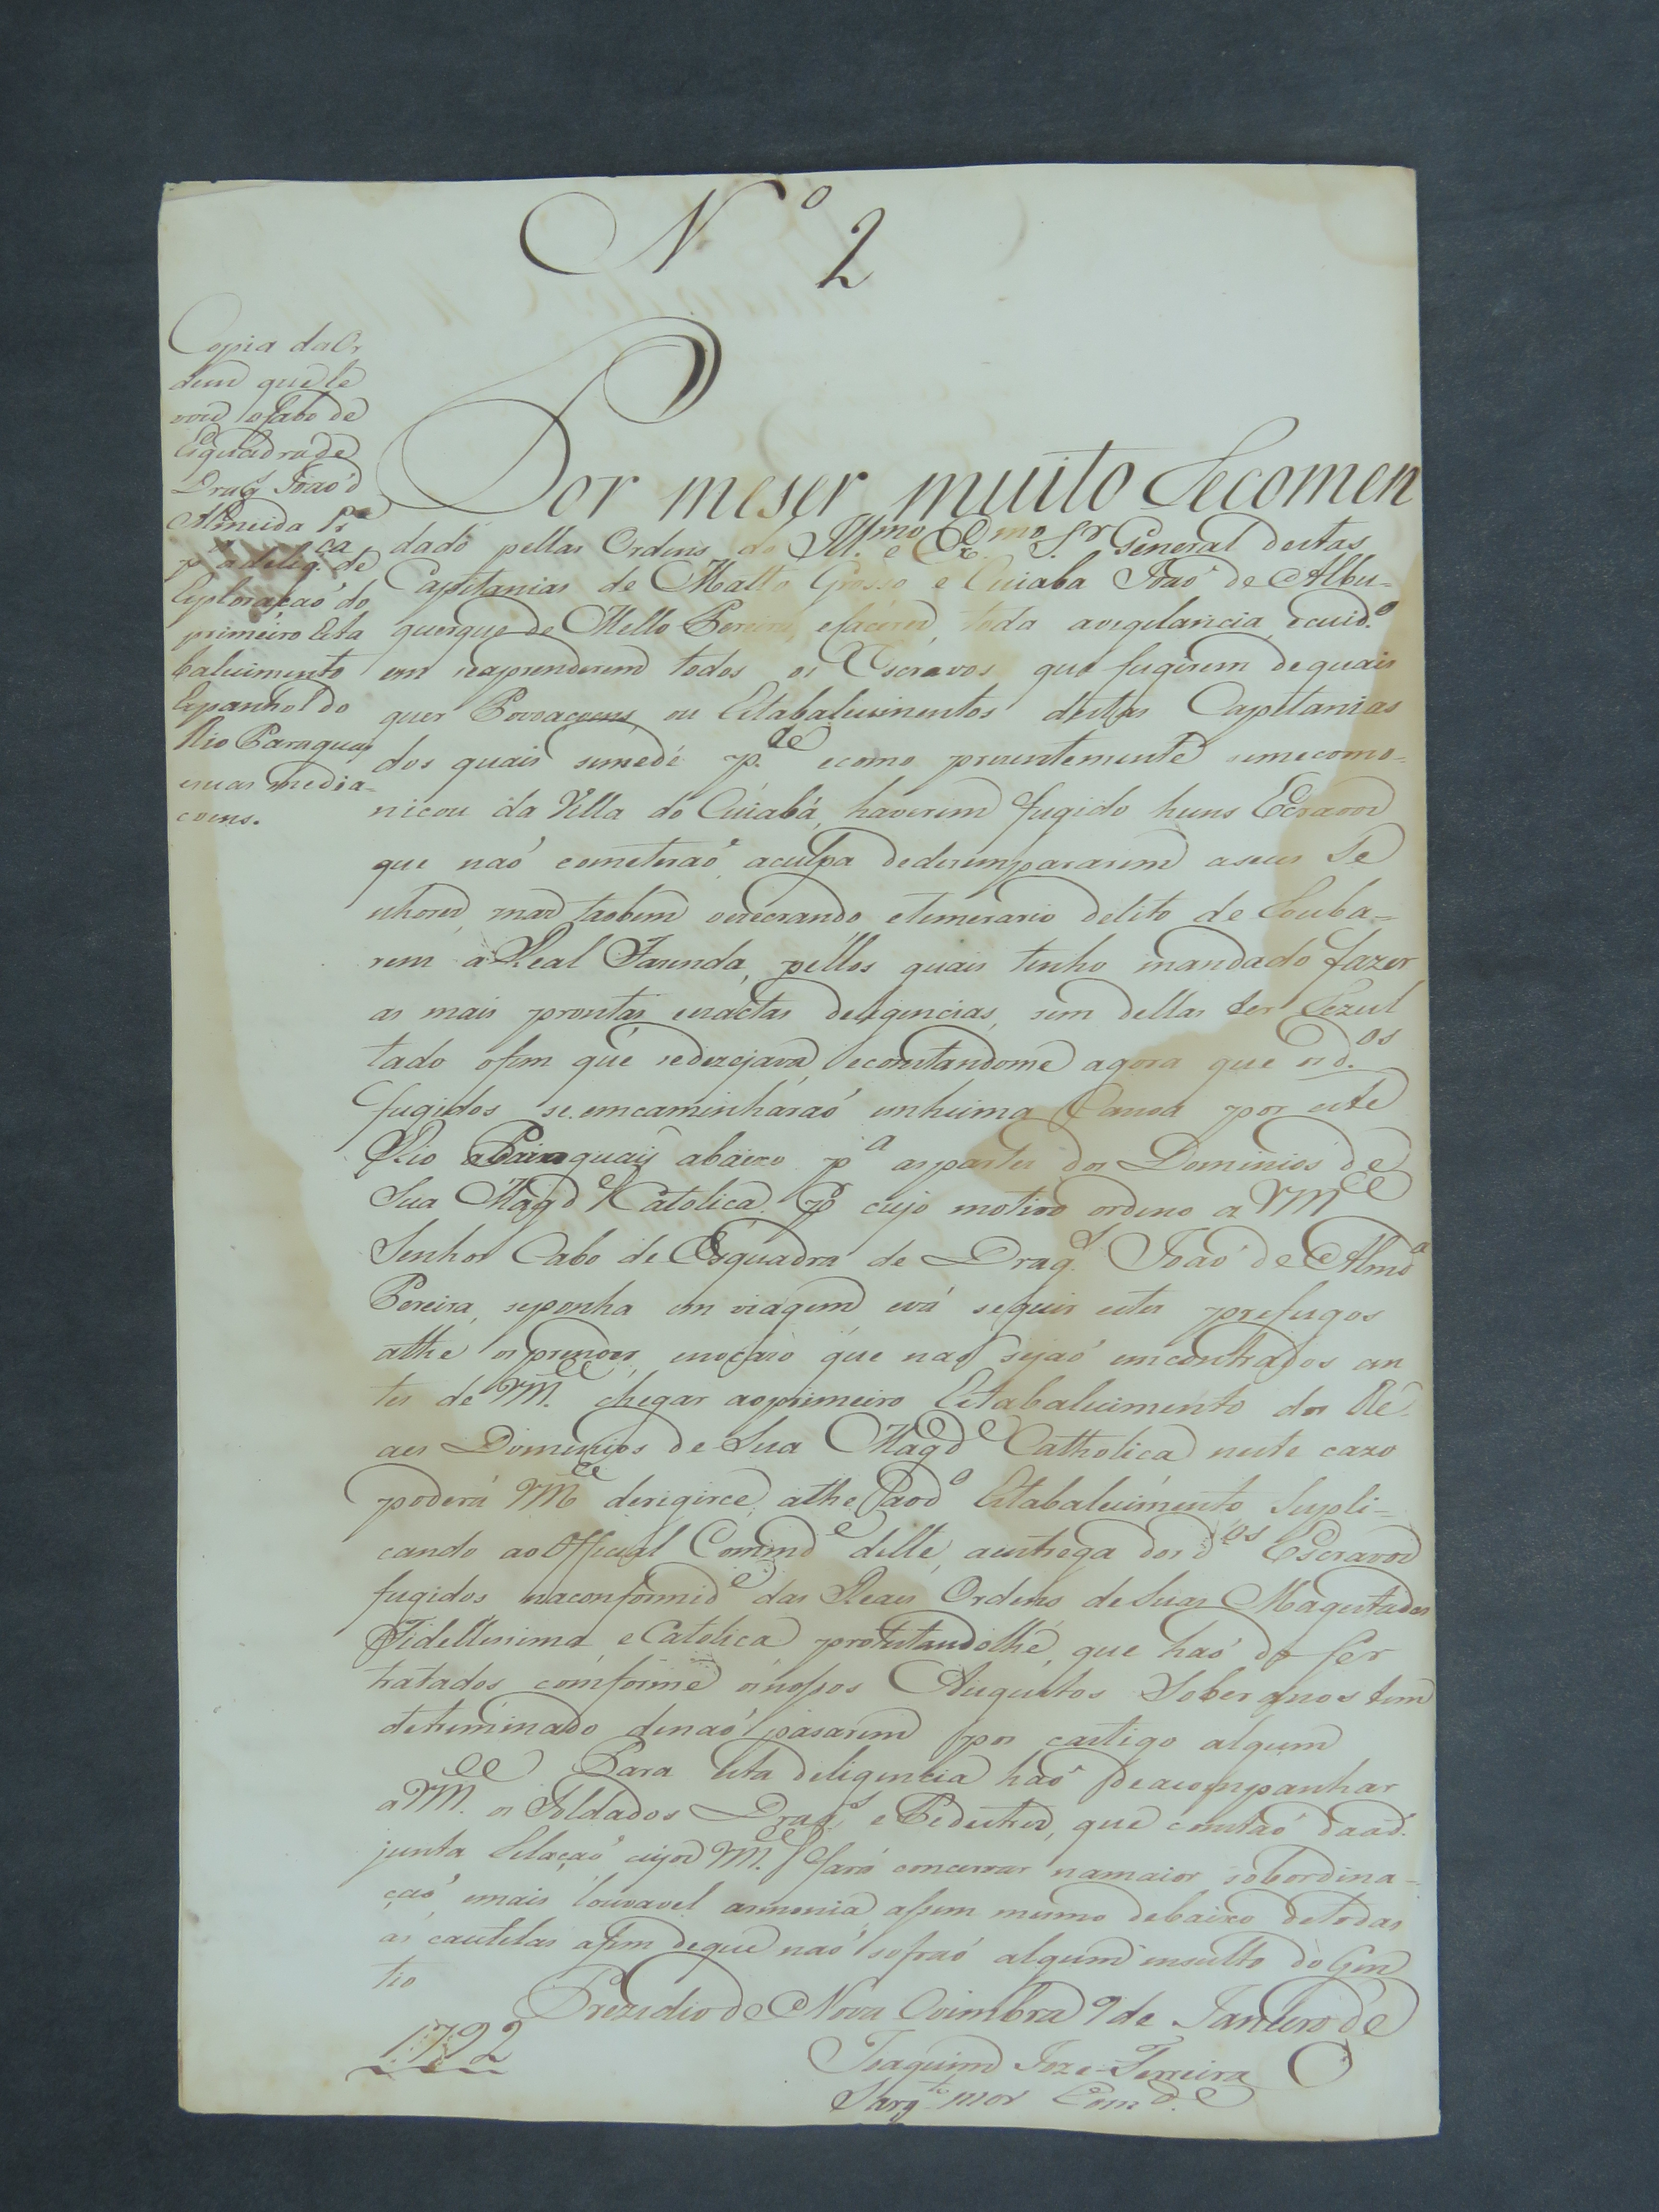 Nº 2
Copia da Or
dem que le
vou o Cabo de
Esquadra de
Dragˢ Joaõ d
Almeida Pʳᵃ
pᵃ a delig.ᶜᵃ de
Exploraçaõ do
primeiro Esta
balecimento
Espanhol do
Rio Paraguay
e suas media=
coens.
Por me ser muito Recomen
dado pellas Ordens do Ill.ᵐᵒ e Ex.ᵐᵒ S.ʳ General destas
Capitanias de Matto Grosso e Cuiaba Joaõ de Albu=
querque de Mello Pereira, e Caceres, toda avegilancia, ecuid.ᵒ
em reaprenderem todos os Escravos que fugirem de quais
quer Povoaçoens, ou Estabalecimentos destas Capitanias
dos quais semedé p.ᵗᵉ ecomo prezentemente semecomo=
nicou da Villa do Cuiabá, haverem fugido huns Escravos
que naõ cometeraõ, aculpa dedezempararem aseus Se
nhores, mas taobem oexecrando etemerario delito de Rouba=
rem a Real Fazenda, pellos quais tenho mandado fazer
as mais prontas, exactas deligencias, sem dellas ter Rezul
tado ofim que sedezejava, econstandome agora que os d.ᵒˢ
fugidos se.emcaminháraõ emhuma Canoa por este
Rio Paraguay abaixo pᵃ aspartes dos Dominios de
Sua Magᵈᵉ Catolica. Pʳ cujo motivo ordeno a VMᶜᵉ
Senhor Cabo de Esquadra de Dragˢ. Joaõ de Almdᵃ
Pereira, seponha em viagem, evá seguir estes prefugos
athe os prender, enocazo que naõ sejaõ emcontrados an
tes de VM.ᶜᵉ chegar aoprimeiro Estabalecimento dos Re
aes Dominios de Sua Magᵈᵉ Catholica neste cazo
poderá VMᶜᵉ derigirce, athe aod.ᵒ Estabalecimento Supli=
cando ao Official Commdᵉ delle, aentrega dos dᵒˢ Escravos
fugidos naconformidᵉ das Reais Ordens de Suas Magestades
Fidellissima, e Catolica protestandolhe, que haõ de ser
tratados comforme os nossos Augustos Soberanos tem
detreminado denaõ pasarem por castigo algum
Para esta deligencia haõ deacompanhar
a VM.ᶜᵉ os Soldados Dragˢ. e Pedestres, que constaõ daad.
junta Relaçaõ cujos VM.ᶜᵉ fará concervar namaior sobordina=
çaõ, emais louvavel armonia, assim mesmo debaixo detodas
as cautelas afim deque naõ sofraõ algum insulto do Gen
tio
Prezidio de Nova Coimbra 9 de Janeiro de
1792
Joaquim Joze Ferreira
Sargᵗᵒ mor Com.ᵈᵉ